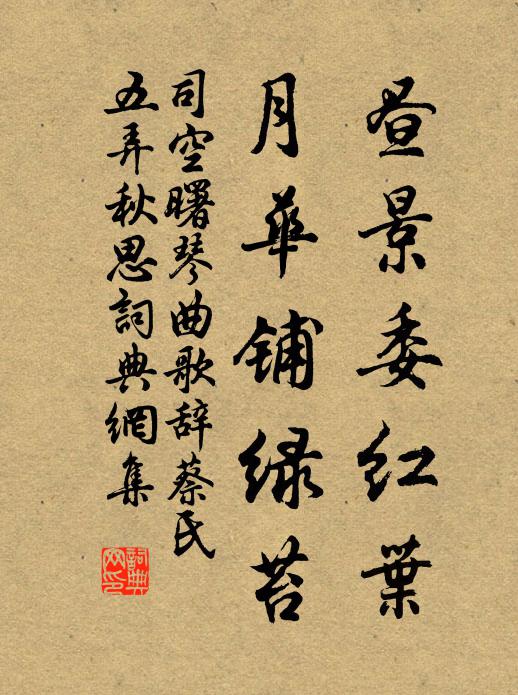 昼景委紅葉
月華铺緑苔
司空曙琴曲歌辞蔡氏
五弄秋思詞典網集
詞典網印